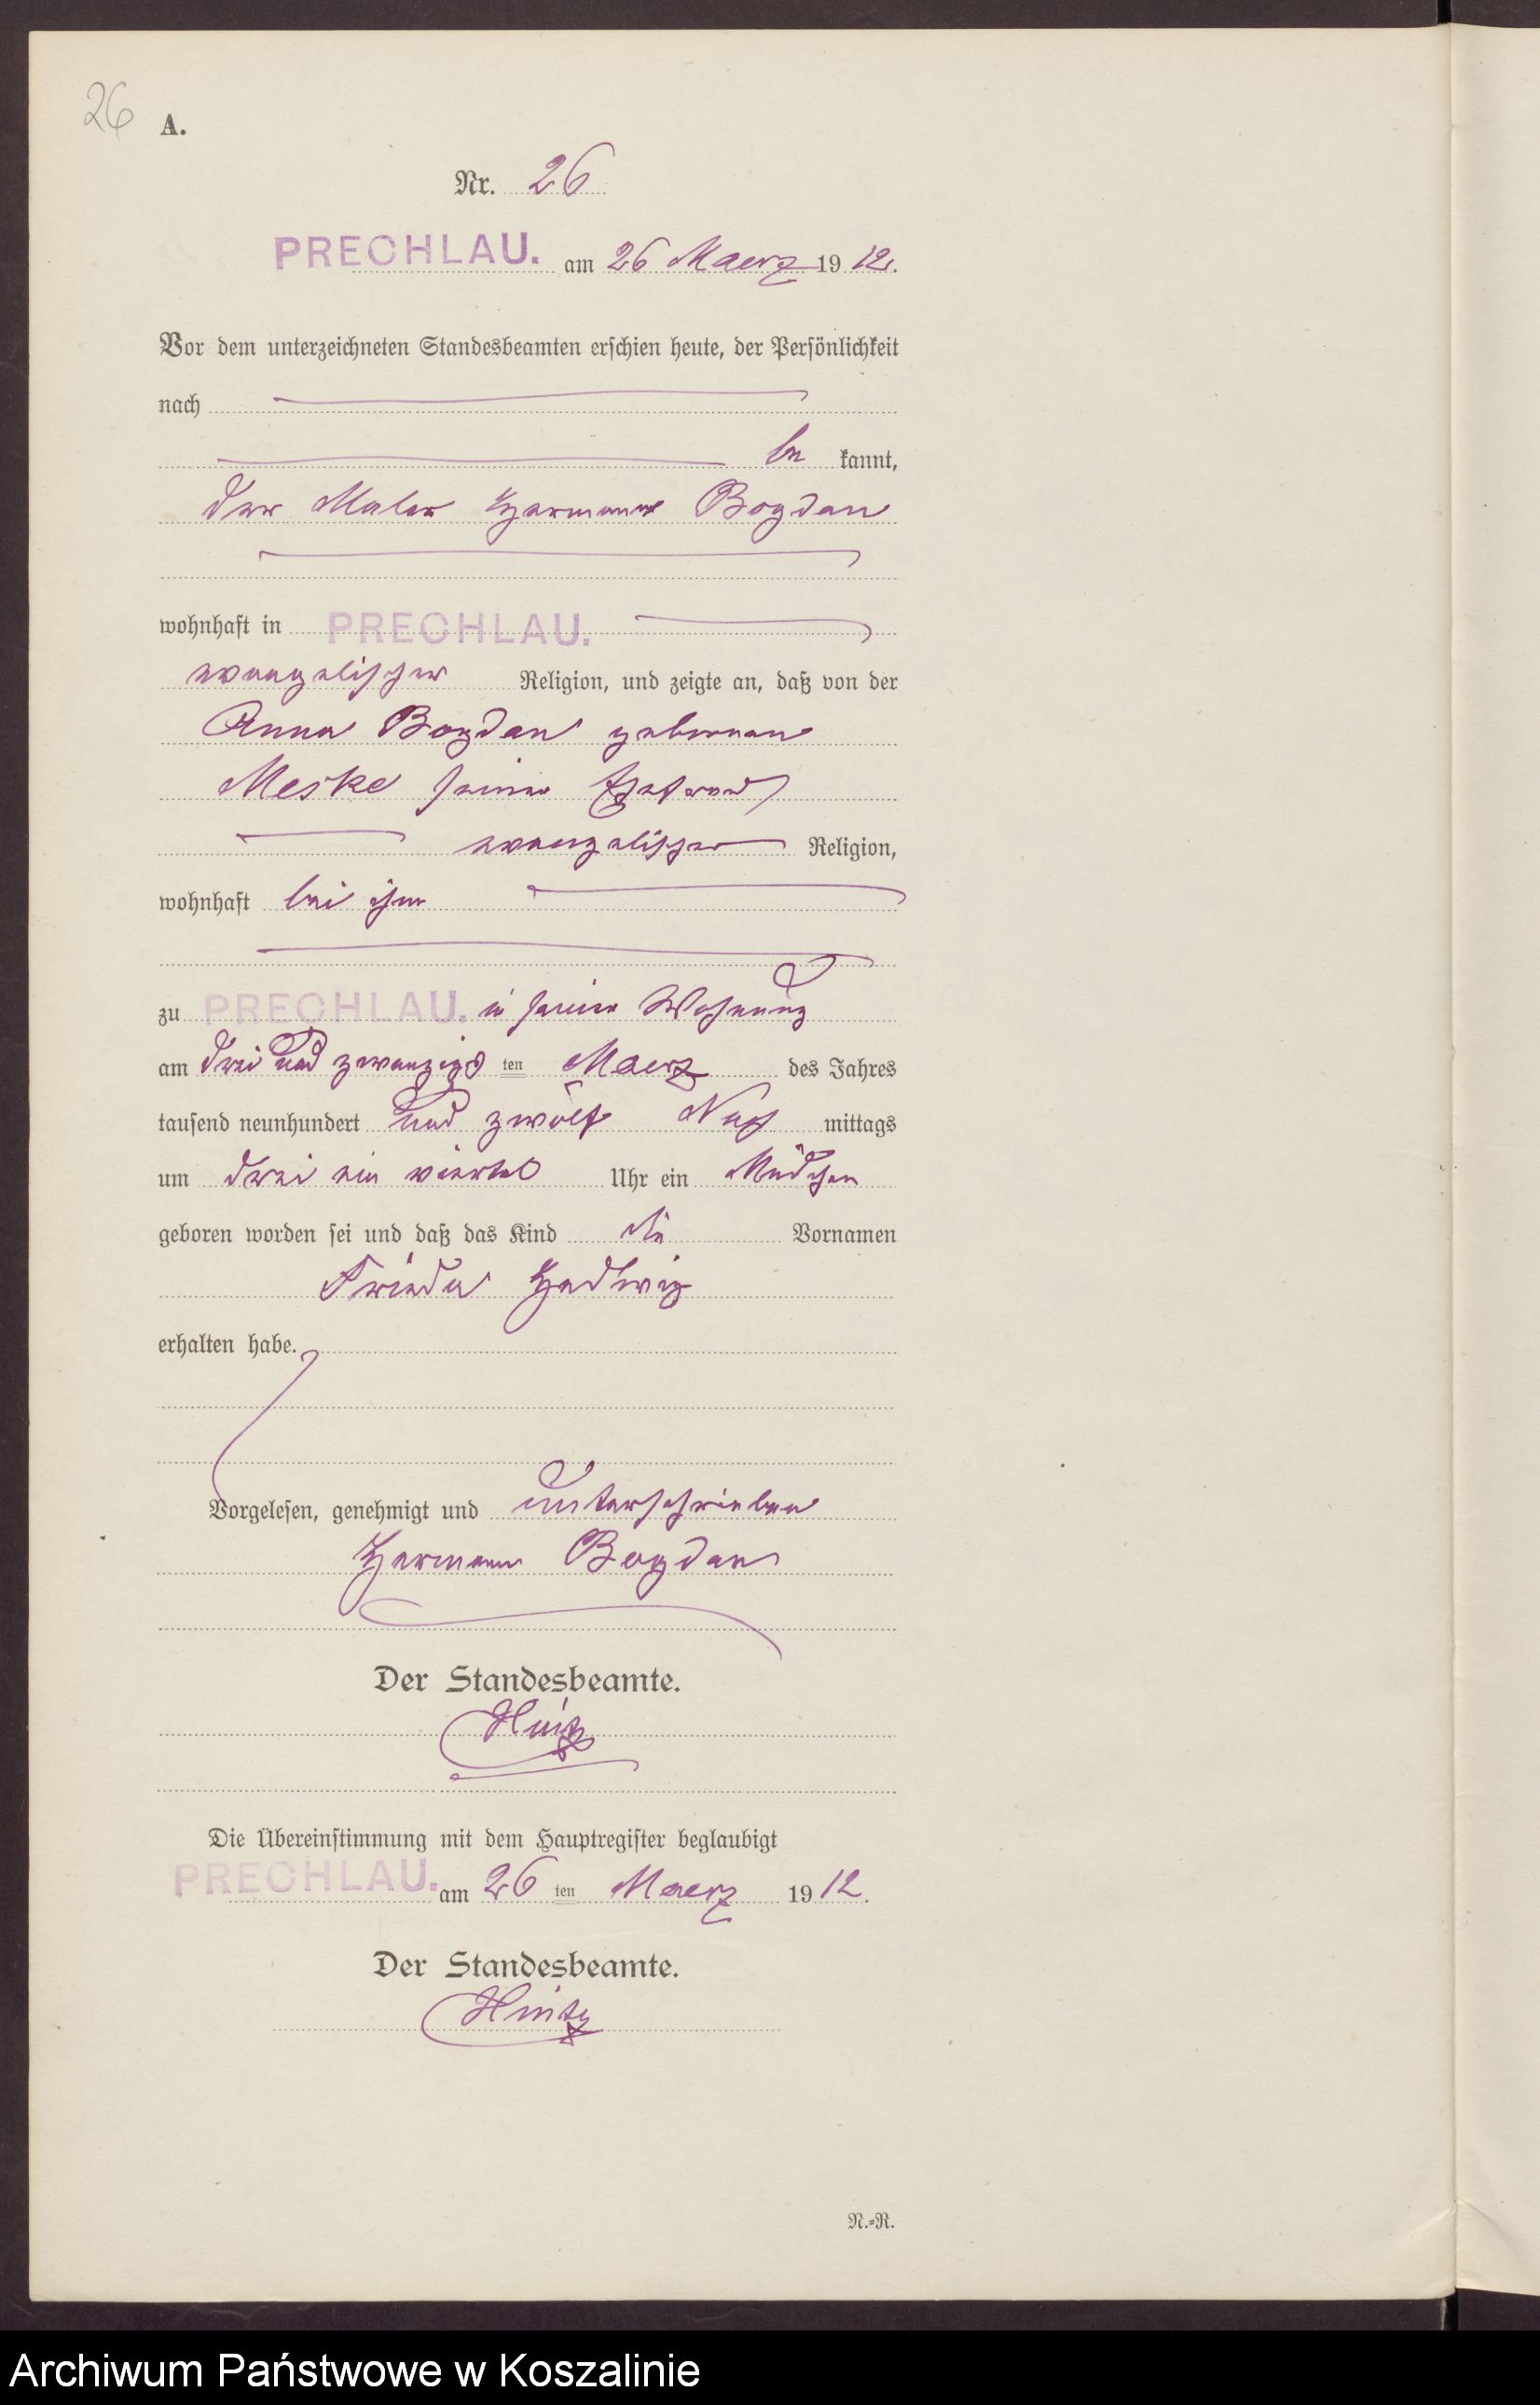 26 A.
Nr. 26
PRECHLAU. am 26 Maerz 1912.
Vor dem unterzeichneten Standesbeamten erschien heute, der Persönlichkeit
nach
be kannt,
der Maler Hermann Bogdan
wohnhaft in PRECHLAU.
evangelischer Religion, und zeigte an, daß von der
Anna Bogdan geborenen
Meske seiner Ehefrau
evangelischer Religion,
wohnhaft bei ihm
zu PRECHLAU. in seiner Wohnung
am drei und zwanzigs ten Maerz des Jahres
tausend neunhundert und zwölf Nach mittags
um drei ein viertel Uhr ein Mädchen
geboren worden sei und daß das Kind die Vornamen
Frieda Hedwig
erhalten habe.
Vorgelesen, genehmigt und unterschrieben
Hermann Bogdan
Der Standesbeamte.
Hintz
Die Übereinstimmung mit dem Hauptregister beglaubigt
PRECHLAU. am 26 ten Maerz 1912.
Der Standesbeamte.
Hintz
N.-R.
Archiwum Państwowe w Koszalinie